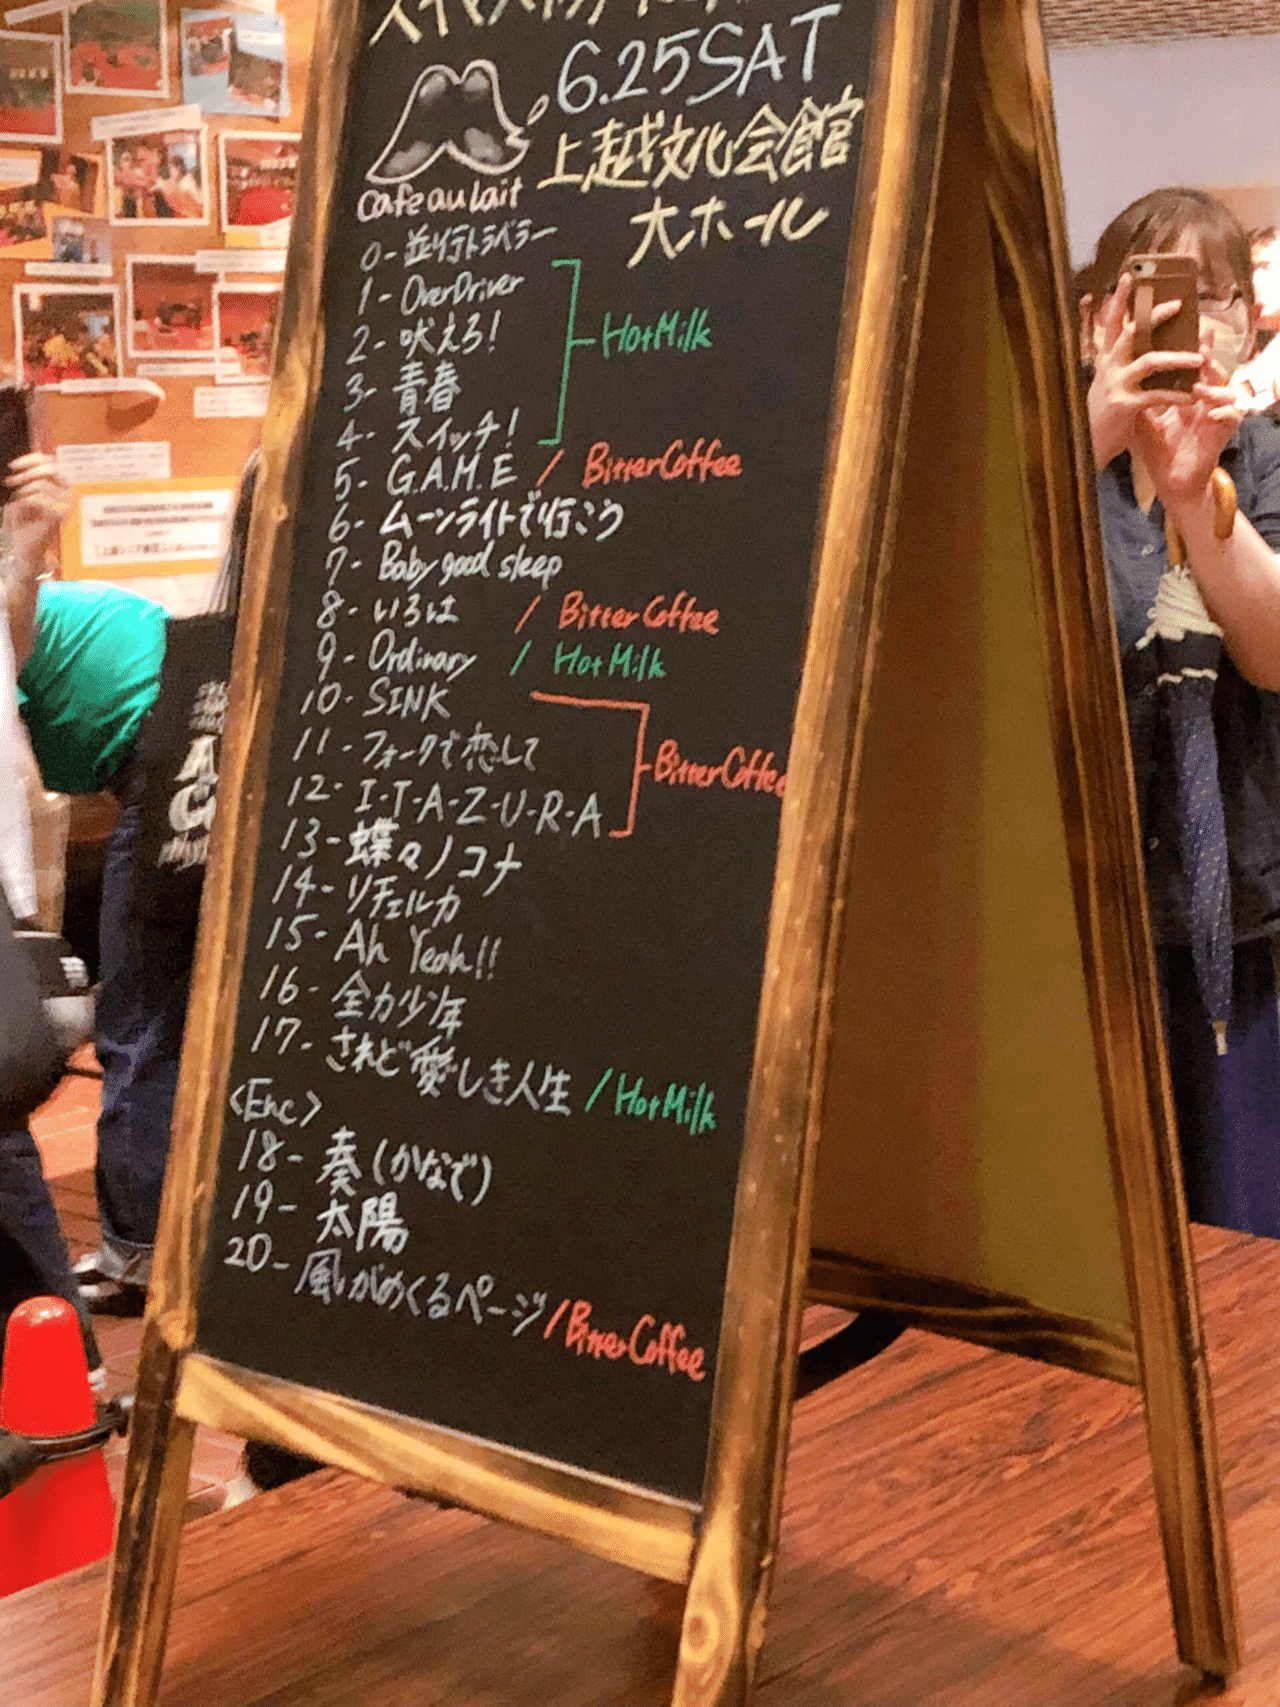 6.25SAT
上越文化会館
大ホール
Cafe au Lait
0-並行トラベラー
1-OverDriver
2-吠えろ!
3-青春
4-スイッチ!
HotMilk
5-G.A.M.E / BitterCoffee
6-ムーンライトで行こう
7-Baby good sleep
8-いろは / BitterCoffee
9-Ordinary / HotMilk
10-SINK
11-フォークで恋して
12-I-T-A-Z-U-R-A
BitterCoffee
13-蝶々ノコナ
14-リチェルカ
15-Ah Yeah!!
16-全力少年
17-されど愛しき人生 / HotMilk
<Enc>
18-奏(かなで)
19-太陽
20-風がめくるページ / BitterCoffee